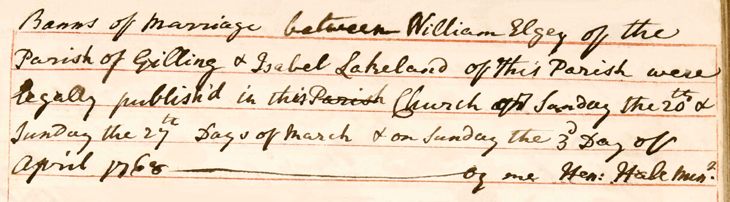 Banns of Marriage between William Elgey of the
Parish of Gilling & Isabel Lakeland of this Parish were
legally publish'd in this Parish Church on Sunday the 20th &
Sunday the 27th Days of March & on Sunday the 3d Day of
April 1768 by me Hen: Hale Minr.